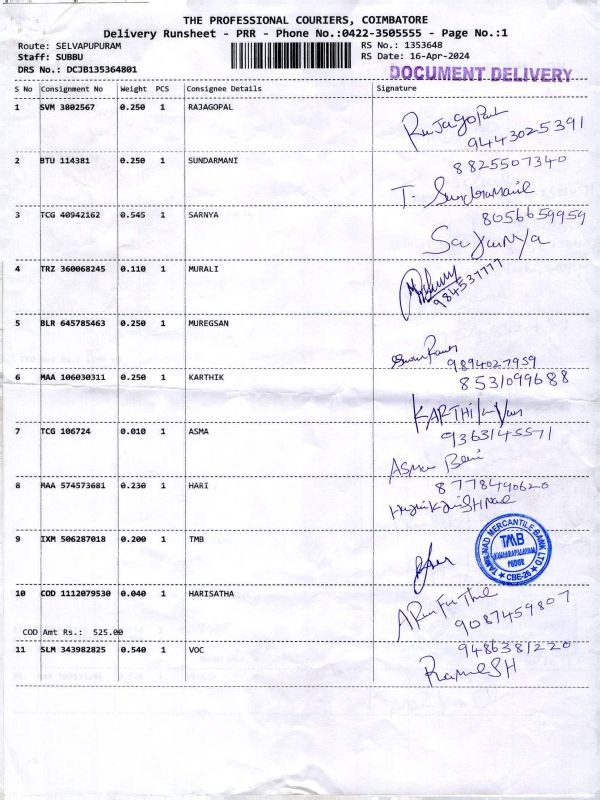 THE PROFESSIONAL COURIERS, COIMBATORE
Delivery Runsheet - PRR - Phone No.:0422-3505555 - Page No.:1
Route: SELVAPUPURAM RS No.: 1353648
Staff: SUBBU RS Date: 16-Apr-2024
DRS No.: DCJB135364801 DOCUMENT DELIVERY
S No Consignment No Weight PCS Consignee Details Signature
1 SVM 3802567 0.250 1 RAJAGOPAL
RajaGopal
9443025391
8825507340
2 BTU 114381 0.250 1 SUNDARMANI
T. Sundaramani
8056659959
3 TCG 40942162 0.545 1 SARNYA
Saranya
4 TRZ 360068245 0.110 1 MURALI
984537777
5 BLR 645785463 0.250 1 MUREGSAN
9894027959
8531099688
6 MAA 106030311 0.250 1 KARTHIK
9363145571
7 TCG 106724 0.010 1 ASMA
Asma
8778490620
8 MAA 574573681 0.230 1 HARI
9 IXM 506287018 0.200 1 TMB
TAMILNAD MERCANTILE BANK LTD
TMB
CBE-26
10 COD 1112079530 0.040 1 HARISATHA
9087459807
COD Amt Rs.: 525.00
9486381220
11 SLM 343982825 0.540 1 VOC
RameSH